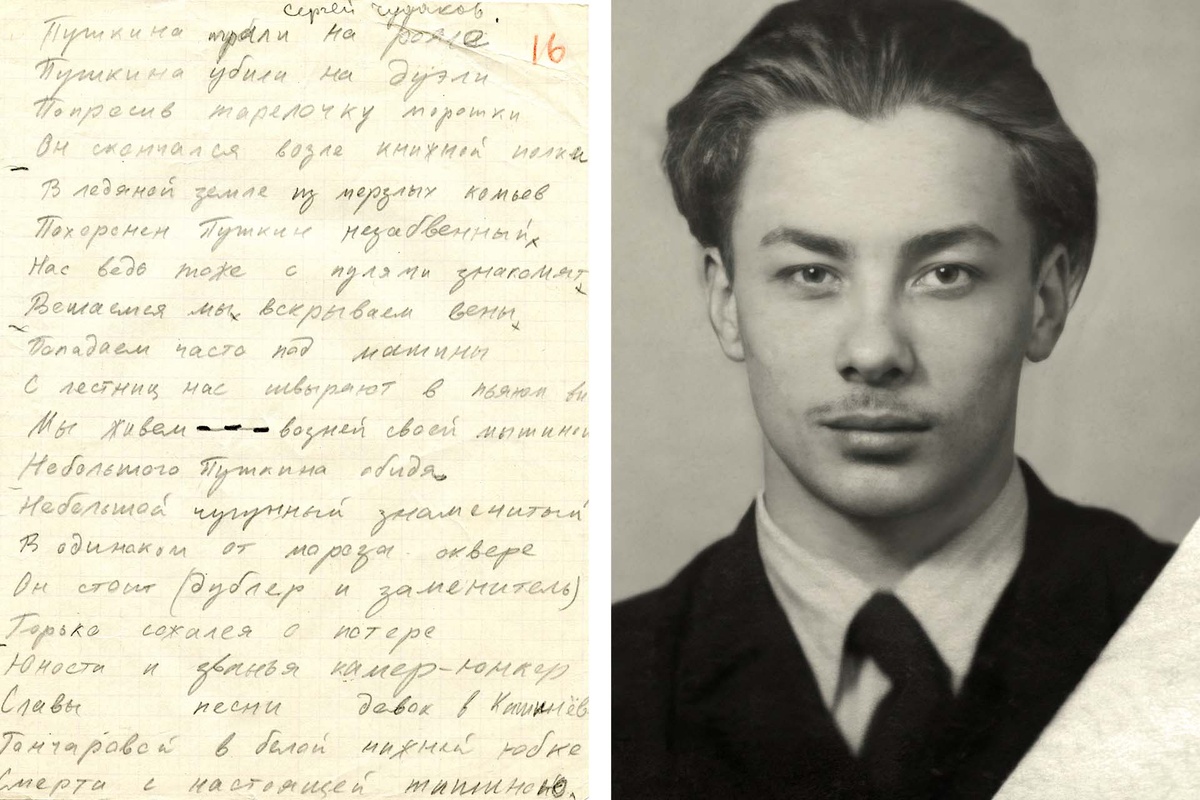 сергей чудаков
Пушкина играли на рояле
16
Пушкина убили на дуэли
Попросив тарелочку морошки
Он скончался возле книжной полки
В ледяной земле из мерзлых комьев
Похоронен Пушкин незабвенный
Нас ведь тоже с пулями знакомят
Вешаемся мы, вскрываем вены,
Попадаем часто под машины
С лестниц нас швыряют в пьяном ви
Мы живем --- возней своей мышиной
Небольшого Пушкина обидя.
Небольшой чугунный знаменитый
В одиноком от мороза сквере
Он стоит (дублер и заменитель)
Горько сожалея о потере
Юности и званья камер-юнкер
Славы песни девок в Кишинёв
Гончаровой в белой нижней юбке
Смерти с настоящей тишиною.